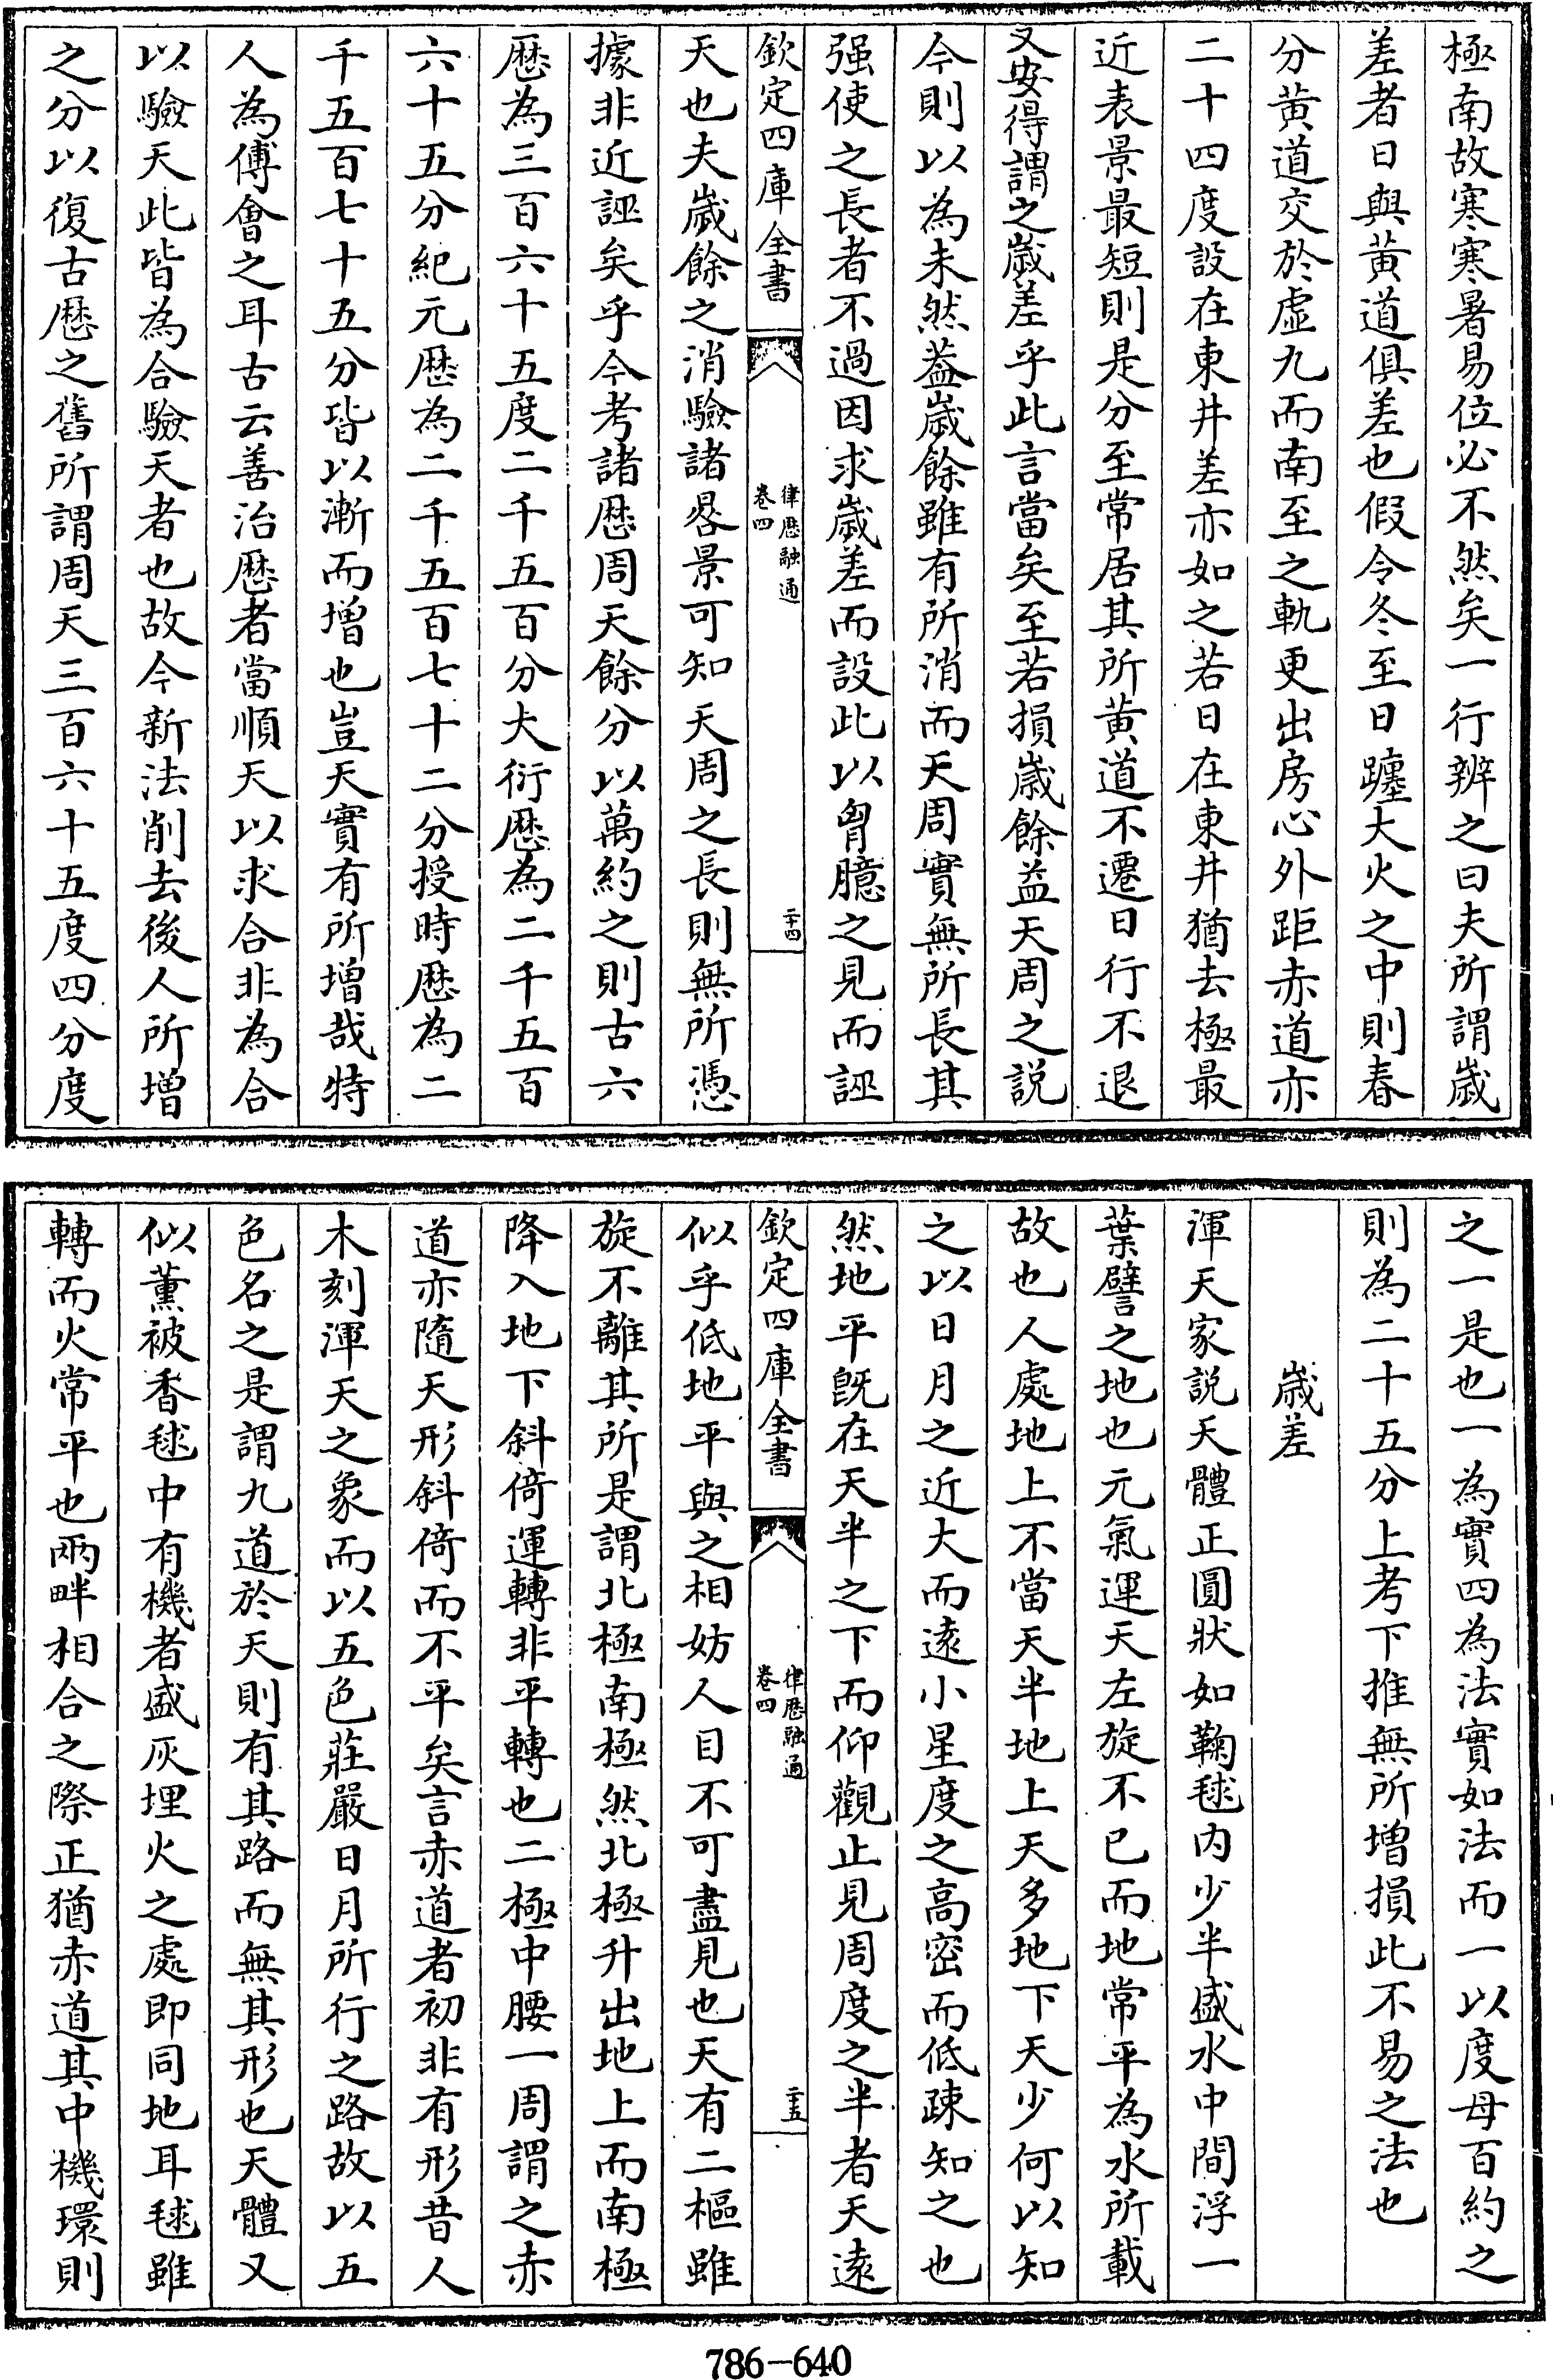 極南故寒寒暑易位必不然矣一行辨之曰夫所謂歲
差者日與黃道俱差也假令冬至日躔大火之中則春
分黃道交於虛九而南至之軌更出房心外距赤道亦
二十四度設在東井差亦如之若日在東井猶去極最
近表景最短則是分至常居其所黃道不遷日行不退
又安得謂之歲差乎此言當矣至若損歲餘益天周之說
今則以為未然蓋歲餘雖有所消而天周實無所長其
强使之長者不過因求歲差而設此以胷臆之見而誣
欽定四庫全書
律厯融通
卷四
二十四
天也夫歲餘之消驗諸晷景可知天周之長則無所憑
據非近誣矣乎今考諸厯周天餘分以萬約之則古六
厯為三百六十五度二千五百分大衍厯為二千五百
六十五分紀元厯為二千五百七十二分授時厯為二
千五百七十五分皆以漸而增也豈天實有所增哉特
人為傅會之耳古云善治厯者當順天以求合非為合
以驗天此皆為合驗天者也故今新法削去後人所增
之分以復古厯之舊所謂周天三百六十五度四分度
之一是也一為實四為法實如法而一以度母百約之
則為二十五分上考下推無所增損此不易之法也
歲差
渾天家說天體正圓狀如鞠毬内少半盛水中間浮一
葉譬之地也元氣運天左旋不已而地常平為水所載
故也人處地上不當天半地上天多地下天少何以知
之以日月之近大而遠小星度之高密而低疎知之也
然地平旣在天半之下而仰觀止見周度之半者天遠
欽定四庫全書
律厯融通
卷四
二十五
似乎低地平與之相妨人目不可盡見也天有二樞雖
旋不離其所是謂北極南極然北極升出地上而南極
降入地下斜倚運轉非平轉也二極中腰一周謂之赤
道亦隨天形斜倚而不平矣言赤道者初非有形昔人
木刻渾天之象而以五色莊嚴日月所行之路故以五
色名之是謂九道於天則有其路而無其形也天體又
似薰被香毬中有機者盛灰埋火之處即同地耳毬雖
轉而火常平也兩畔相合之際正猶赤道其中機環則
786-640